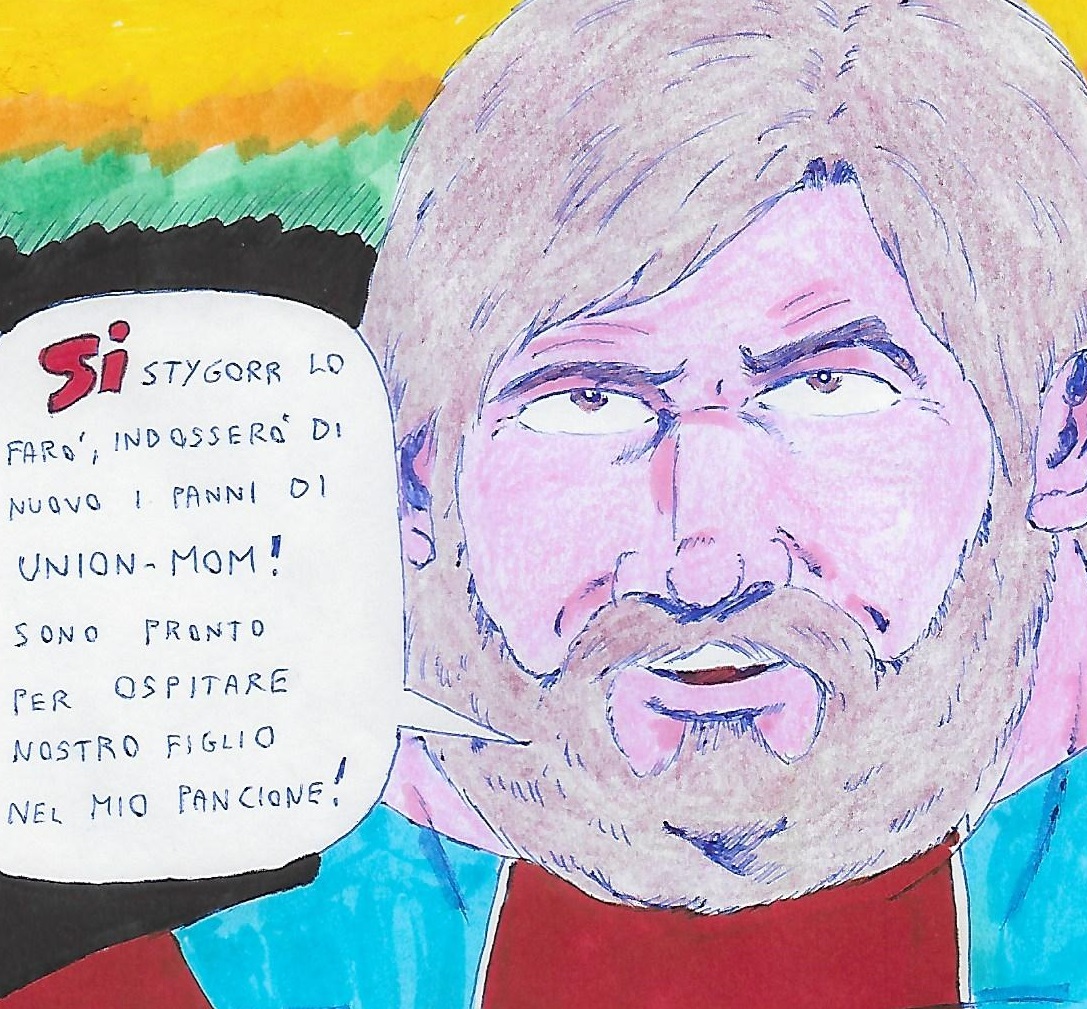 Si STYGORR LO
FARO', INDOSSERO' DI
NUOVO I PANNI DI
UNION-MOM!
SONO PRONTO
PER OSPITARE
NOSTRO FIGLIO
NEL MIO PANCIONE!